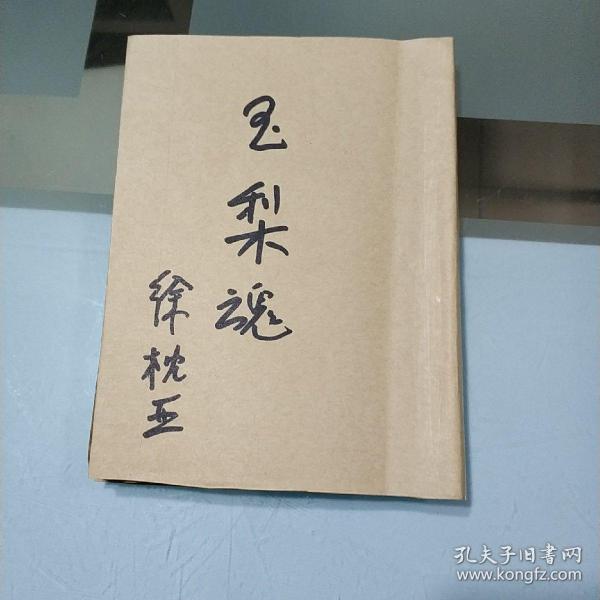 玉梨魂
徐枕亚
孔夫子旧書网
www.kongfz.com